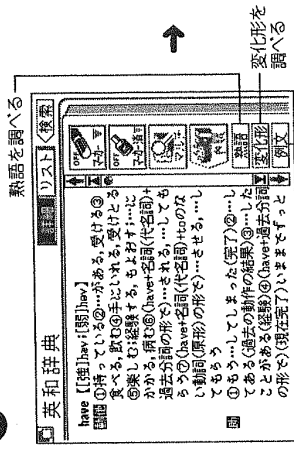 熟語を調べる
英和辞典
詳細 リスト 検索
have 【[強]hæv;[弱]həv】
①持っている②…がある,受ける③
食べる,飲む④手にいれる,受けとる
⑤楽しむ;経験する,もよおす;…に
かかる,病む⑥(have+名詞(代名詞)+
過去分詞の形で)…される,…しても
らう⑦(have+名詞(代名詞)+toのな
い動詞(原形)の形で)…させる,…し
てもらう
助 ①もう…してしまった(完了)②…し
てある(過去の動作の結果)③…した
ことがある(経験)④(have+過去分詞
の形で)(現在完了)いままでずっと
OFF
マーカー
OFF
熟語
変化形
例文
変化形を
調べる